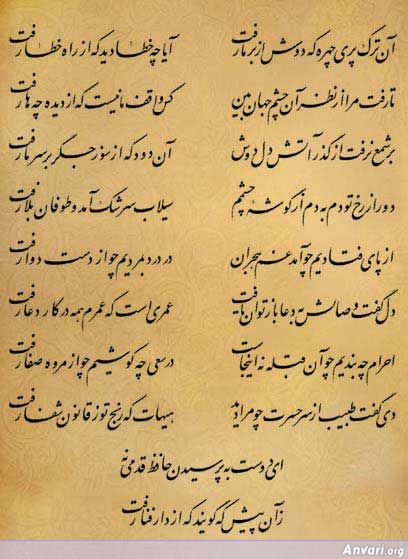 آن ترک پری چهره که دوش از بر ما رفت آیا چه خطا دید که از راه خطا رفت
تا رفت مرا از نظر آن چشم جهان بین کس واقف ما نیست که از دیده چه‌ها رفت
بر شمع نرفت از گذر آتش دل دوش آن دود که از سوز جگر بر سر ما رفت
دور از رخ تو دم به دم از گوشه چشمم سیلاب سرشک آمد و طوفان بلا رفت
از پای فتادیم چو آمد غم هجران در درد بمردیم چو از دست دوا رفت
دل گفت وصالش به دعا باز توان یافت عمری است که عمرم همه در کار دعا رفت
احرام چه بندیم چو آن قبله نه اینجاست در سعی چه کوشیم چو از مروه صفا رفت
دی گفت طبیب از سر حسرت چو مرا دید هیهات که رنج تو ز قانون شفا رفت
ای دوست به پرسیدن حافظ قدمی نه
زآن پیش که گویند که از دار فنا رفت
Anvari.org